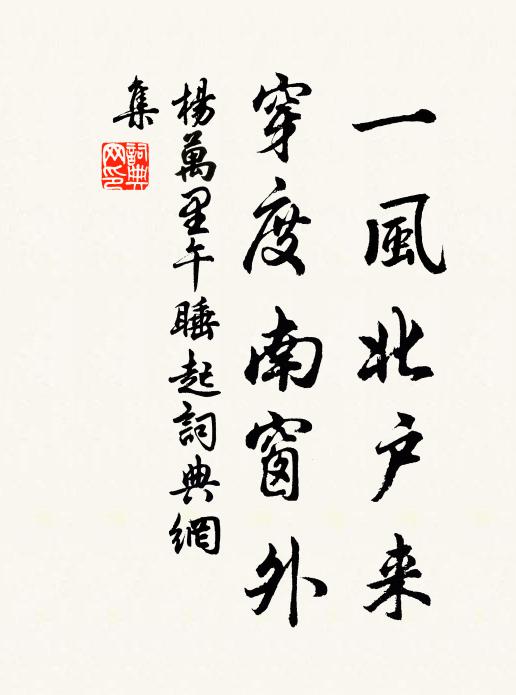 一風北户来
穿度南窗外
楊萬里午睡起詞典網
集
詞典
网印